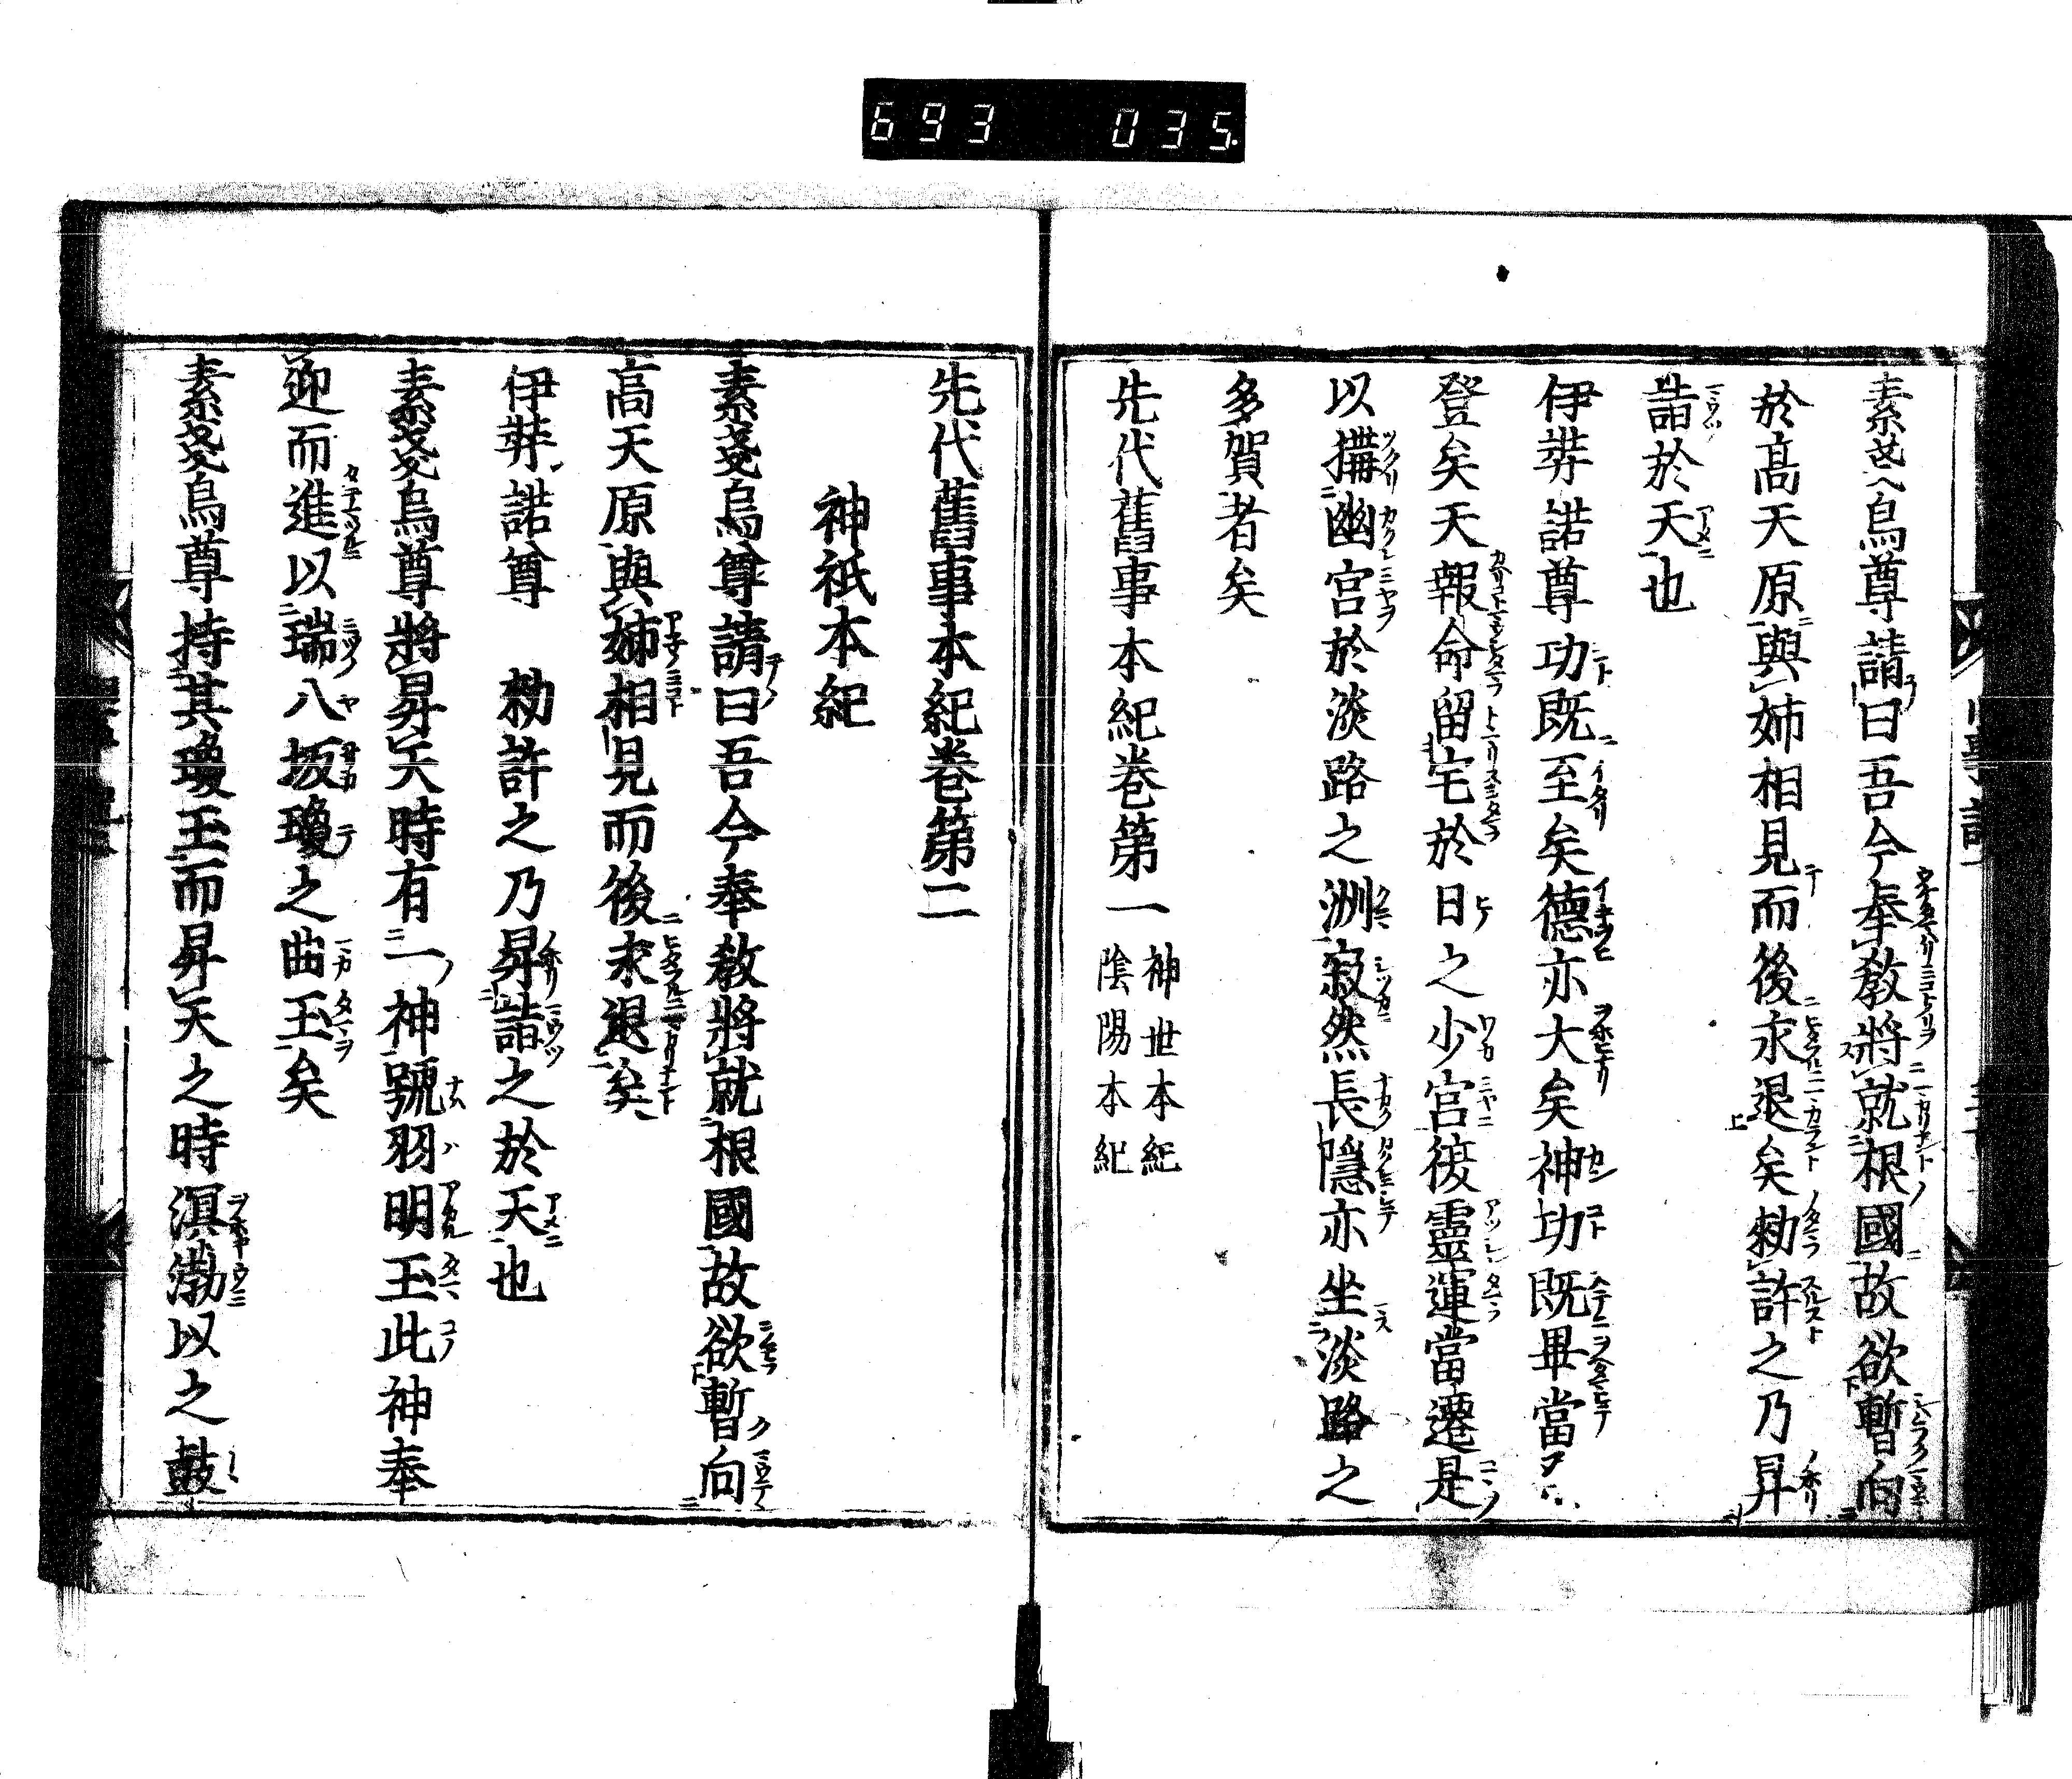 693 035
素戔烏尊請曰吾今奉教將就根國故欲暫向
於高天原與姉相見而後永退矣勅許之乃昇
詣於天也
伊弉諾尊功既至矣德亦大矣神功既畢當
登矣天報命留宅於日之少宮後靈運當遷是
以搆幽宮於淡路之洲寂然長隱亦坐淡路之
多賀者矣
先代舊事本紀卷第一
神世本紀
陰陽本紀
先代舊事本紀卷第二
神祇本紀
素戔烏尊請曰吾今奉敎將就根國故欲暫向
高天原與姉相見而後永退矣
伊弉諾尊 勅許之乃昇詣之於天也
素戔烏尊將昇天時有一神號羽明玉此神奉
迎而進以瑞八坂瓊之曲玉矣
素戔烏尊持其瓊玉而昇天之時溟渤以之鼓